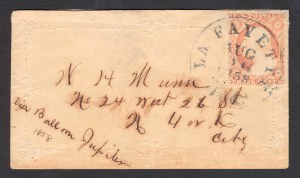 LA FAYETTE
AUG
N H Munn
No 24 West 26 St
N York
City
Via Balloon Jupiter
1858